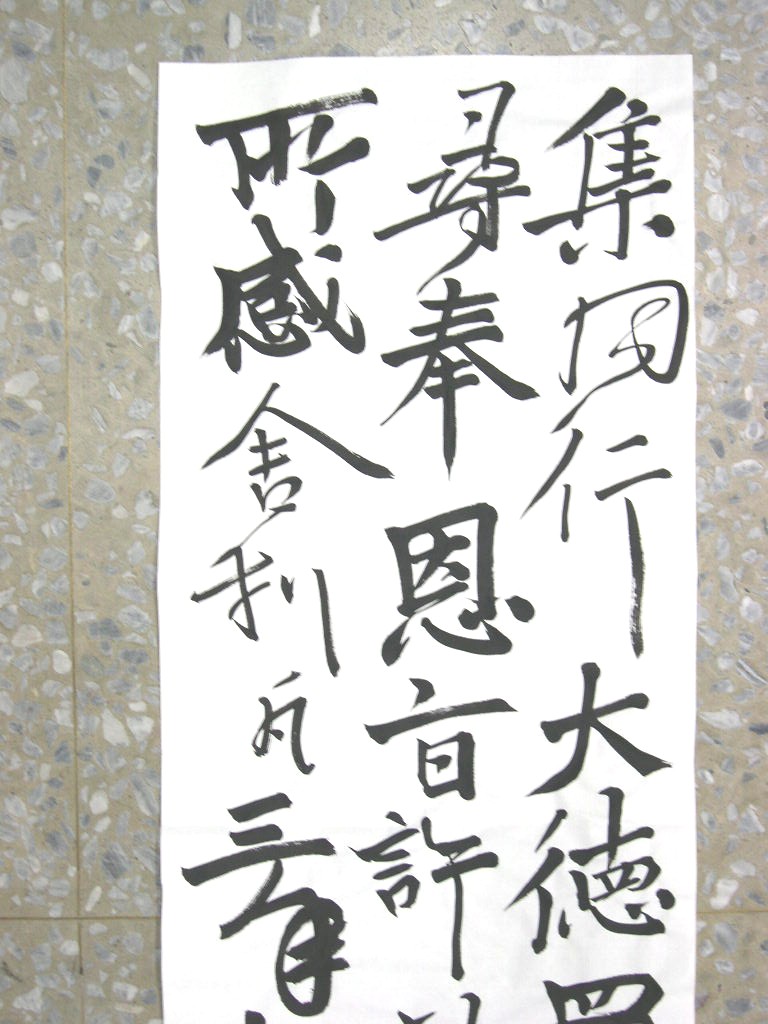 集同行大德四
尋奉恩旨許
所感舍利凡三